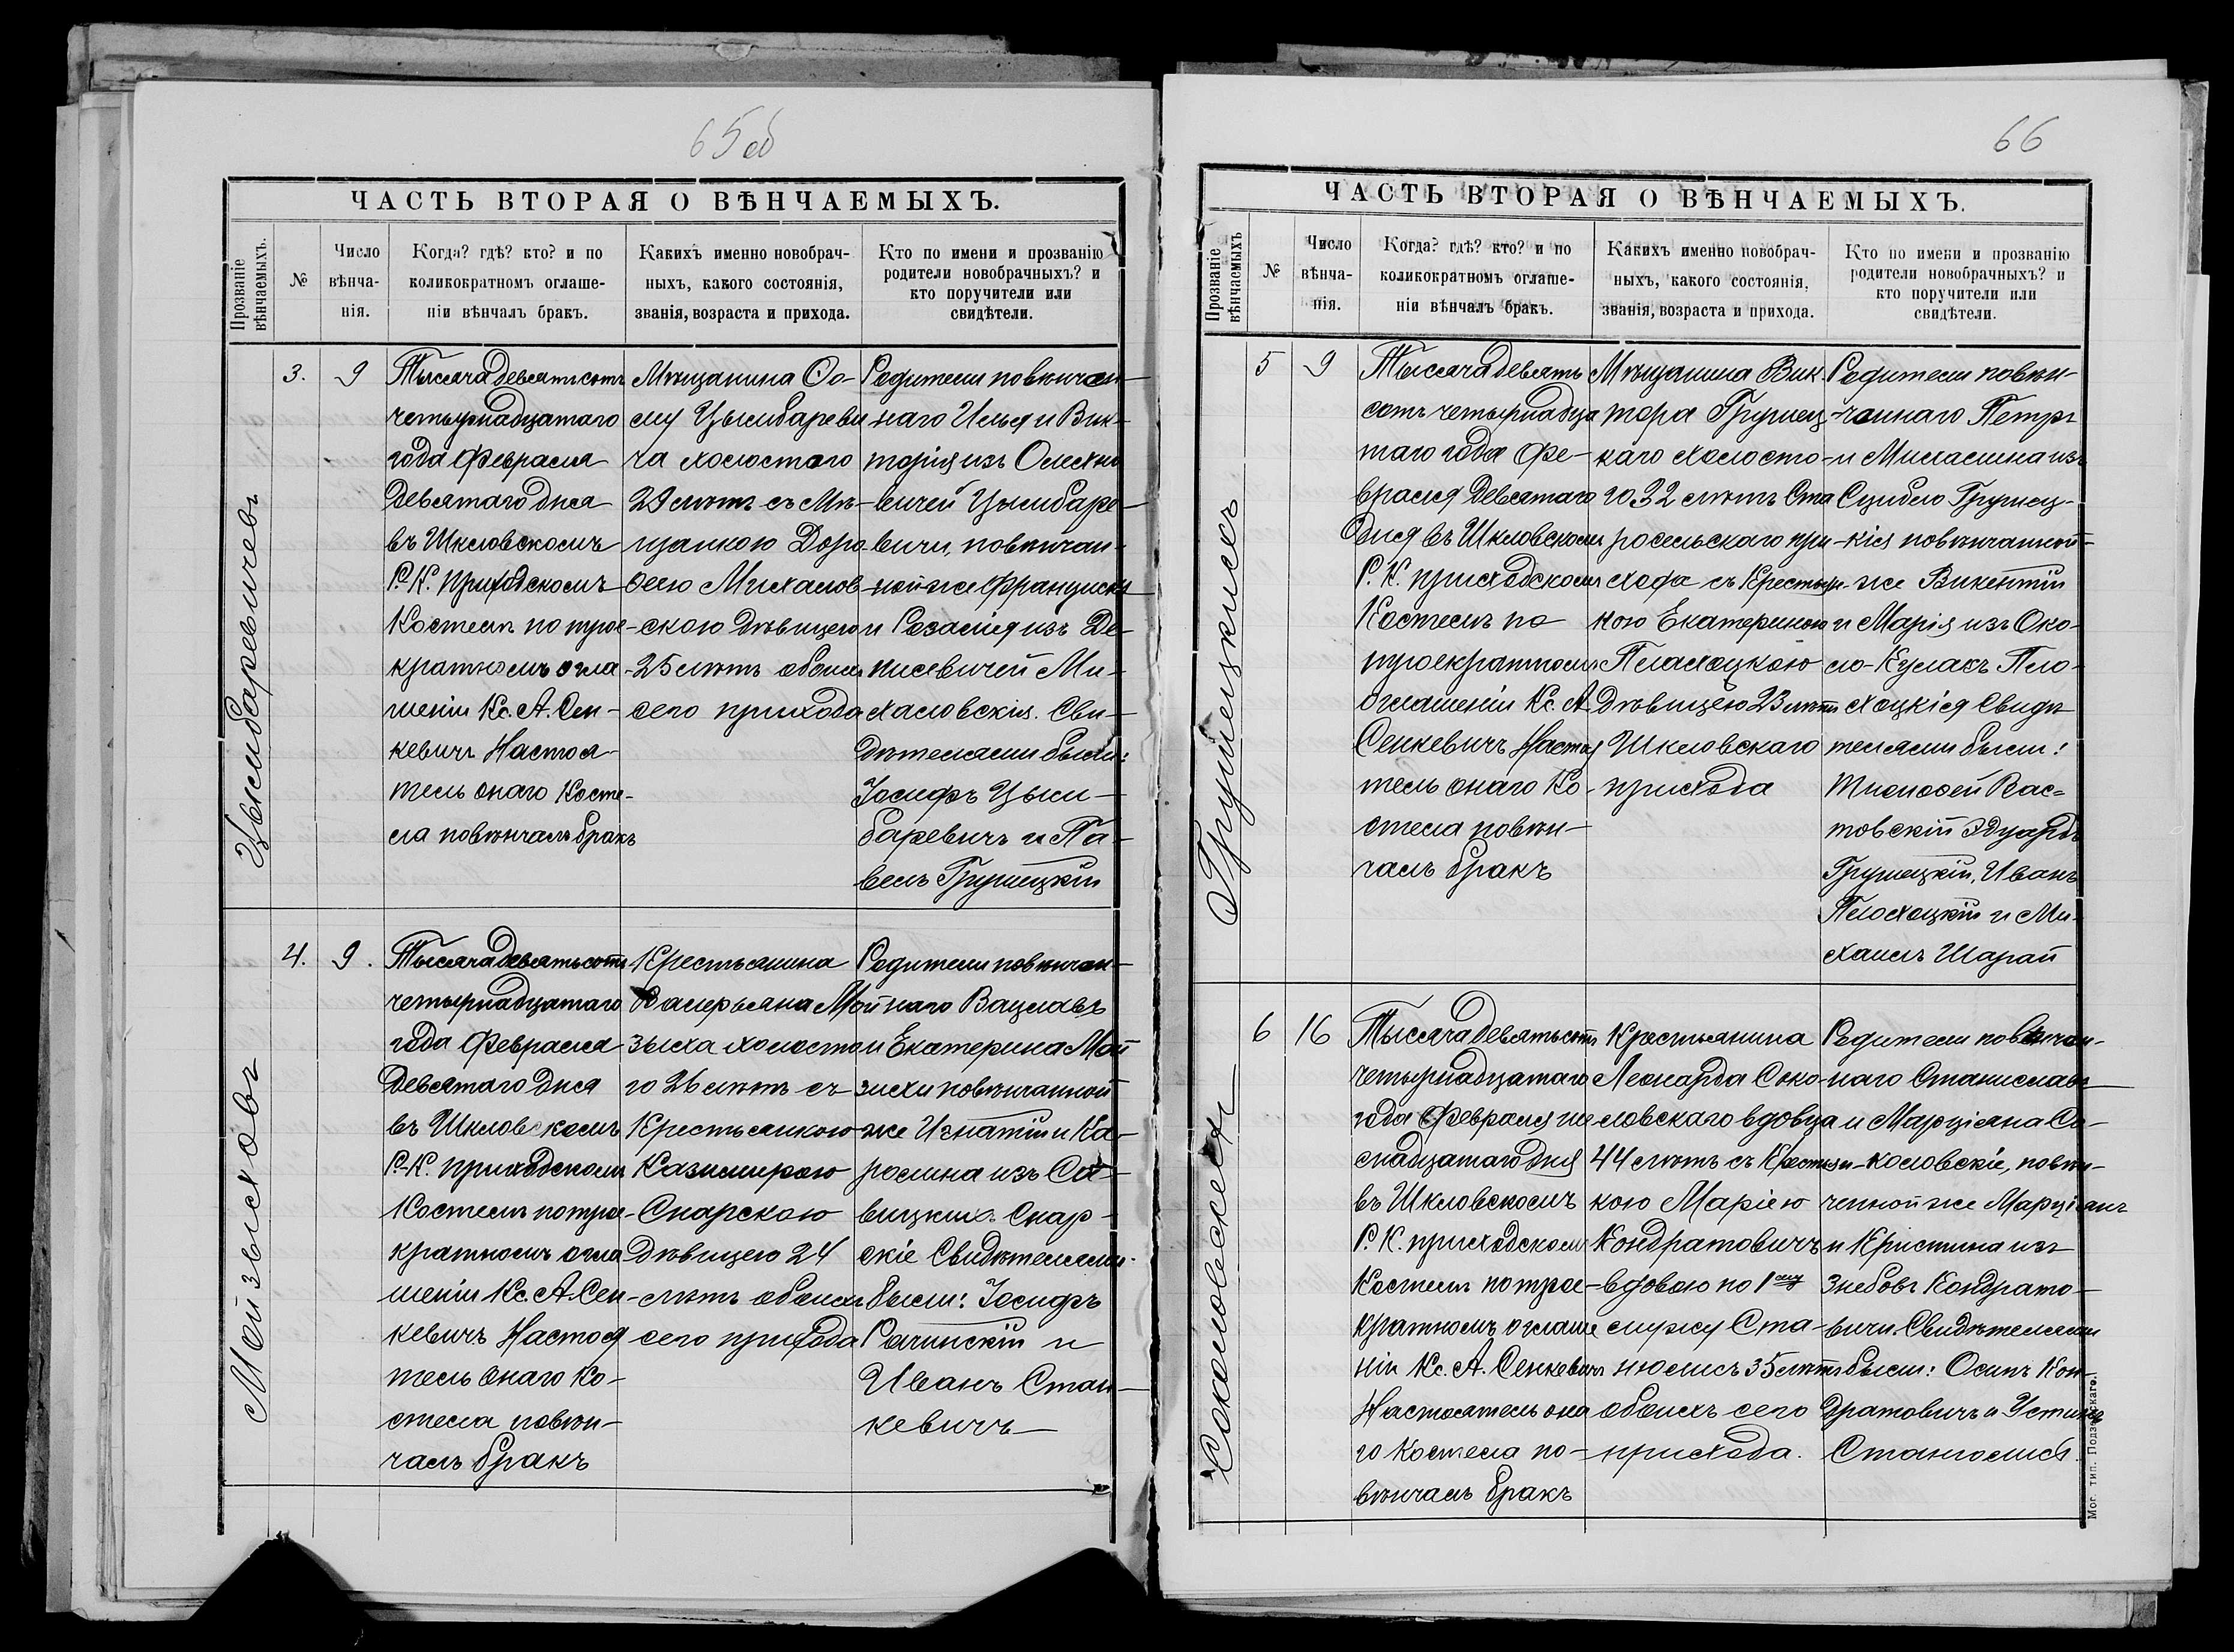 65 об
ЧАСТЬ ВТОРАЯ О ВѢНЧАЕМЫХЪ.
Прозваніе вѣнчаемыхъ.
№
Число
вѣнча-
нія.
Когда? гдѣ? кто? и по
коликократномъ оглаше-
ніи вѣнчалъ бракъ.
Какихъ именно новобрач-
ныхъ, какого состоянія,
званія, возраста и прихода.
Кто по имени и прозванію
родители новобрачныхъ? и
кто поручители или
свидѣтели.
Цымбаревичевъ
3.
9
Тысяча девятьсотъ
четырнадцатаго
года февраля
девятаго дня
въ Шкловскомъ
Р. К. приходскомъ
Костелѣ по трое-
кратномъ огла-
шеніи Кс. А. Сен-
кевичъ Настоя-
тель онаго Косте-
ла повѣнчалъ бракъ
Мѣщанина Ѳо-
му Цымбареви
ча холостого
29 лѣтъ съ Мѣ-
щанкою Доро-
ѳею Михалов-
скою дѣвицею
25 лѣтъ обоихъ
сего прихода
Родители повѣнчан-
наго Илья и Вик-
торія изъ
Цымбаре-
вичи, повѣнчан-
ной же Францискъ
и Розалія изъ Де-
нисевичей Ми-
халовскія. Сви-
дѣтелями были:
Іосифъ Цым-
баревичъ и Па-
велъ Грушецкій
Мойзыховъ
4.
9.
Тысяча девятьсотъ
четырнадцатаго
года февраля
девятаго дня
въ Шкловскомъ
Р. К. приходскомъ
Костелѣ по трое-
кратномъ огла
шеніи Кс. А. Сен-
кевичъ Настоя
тель онаго Ко-
стела повѣн-
чалъ бракъ
Крестьянина
Валерьяна Мой
зыха холосто
го 26 лѣтъ съ
Крестьянкою
Казимирою
Снарскою
дѣвицею 24
лѣтъ обоихъ
сего прихода
Родители повѣнчан-
наго Вацлавъ
и Екатерина Мой
зихи повѣнчанной
же Игнатій и Ка-
ролина изъ Са-
вицкихъ Снар-
скіе Свидѣтелями
были: Іосифъ
Рачинскій и
Иванъ Стан-
кевичъ
66
ЧАСТЬ ВТОРАЯ О ВѢНЧАЕМЫХЪ.
Прозваніе вѣнчаемыхъ
№
Число
вѣнча-
нія.
Когда? гдѣ? кто? и по
коликократномъ оглаше-
ніи вѣнчалъ бракъ.
Какихъ именно новобрач-
ныхъ, какого состоянія,
званія, возраста и прихода.
Кто по имени и прозванію
родители новобрачныхъ? и
кто поручители или
свидѣтели.
Грушецкихъ
5
9
Тысяча девять
сотъ четырнадца
таго года фе-
враля девятаго
дня въ Шкловскомъ
Р. К. приходскомъ
Костелѣ по
троекратномъ
оглашеніи Кс. А.
Сенкевичъ Настоя
тель онаго Ко-
стела повѣн-
чалъ бракъ
Мѣщанина Вик-
тора Грушец-
каго холосто-
го 32 лѣтъ Ста
росельскаго при-
хода съ Крестьян-
кою Екатериною
Плахоцкою
дѣвицею 23 лѣтъ
Шкловскаго
прихода
Родители повѣн-
чаннаго Петръ
и Михалина изъ
Грушец-
кія повѣнчанной
же Викентій
и Марія изъ Око-
ло-Кулакъ Пло-
хоцкія Свидѣ
телями были:
Тимоѳей
товскій Эдуардъ
Грушецкій, Иванъ
Плохоцкій и Ми-
хаилъ Шарай
Соколовскихъ
6
16
Тысяча девятьсотъ
четырнадцатаго
года февраля ше
снадцатаго дня
въ Шкловскомъ
Р. К. приходскомъ
Костелѣ по трое-
кратномъ оглаше
ніи Кс. А. Сенкевичъ
Настоятель она
го Костела по-
вѣнчалъ бракъ
Крестьянина
Леонарда Соко-
ловскаго вдовца
44 лѣтъ съ Крестьян-
кою Маріею
Кондратовичъ
вдовою по 1ому
мужу Ста-
нюлисъ 35 лѣтъ
обоихъ сего
прихода.
Родители повѣнчан-
наго Станиславъ
и Марціяна Со-
коловскіе, повѣн-
ченной же Марціянъ
и Кристина изъ
Кондрато-
вичи. Свидѣтелями
были: Осипъ Кон-
дратовичъ и Устинъ
Станюлисъ.
Мог. тип. Подземскаго.